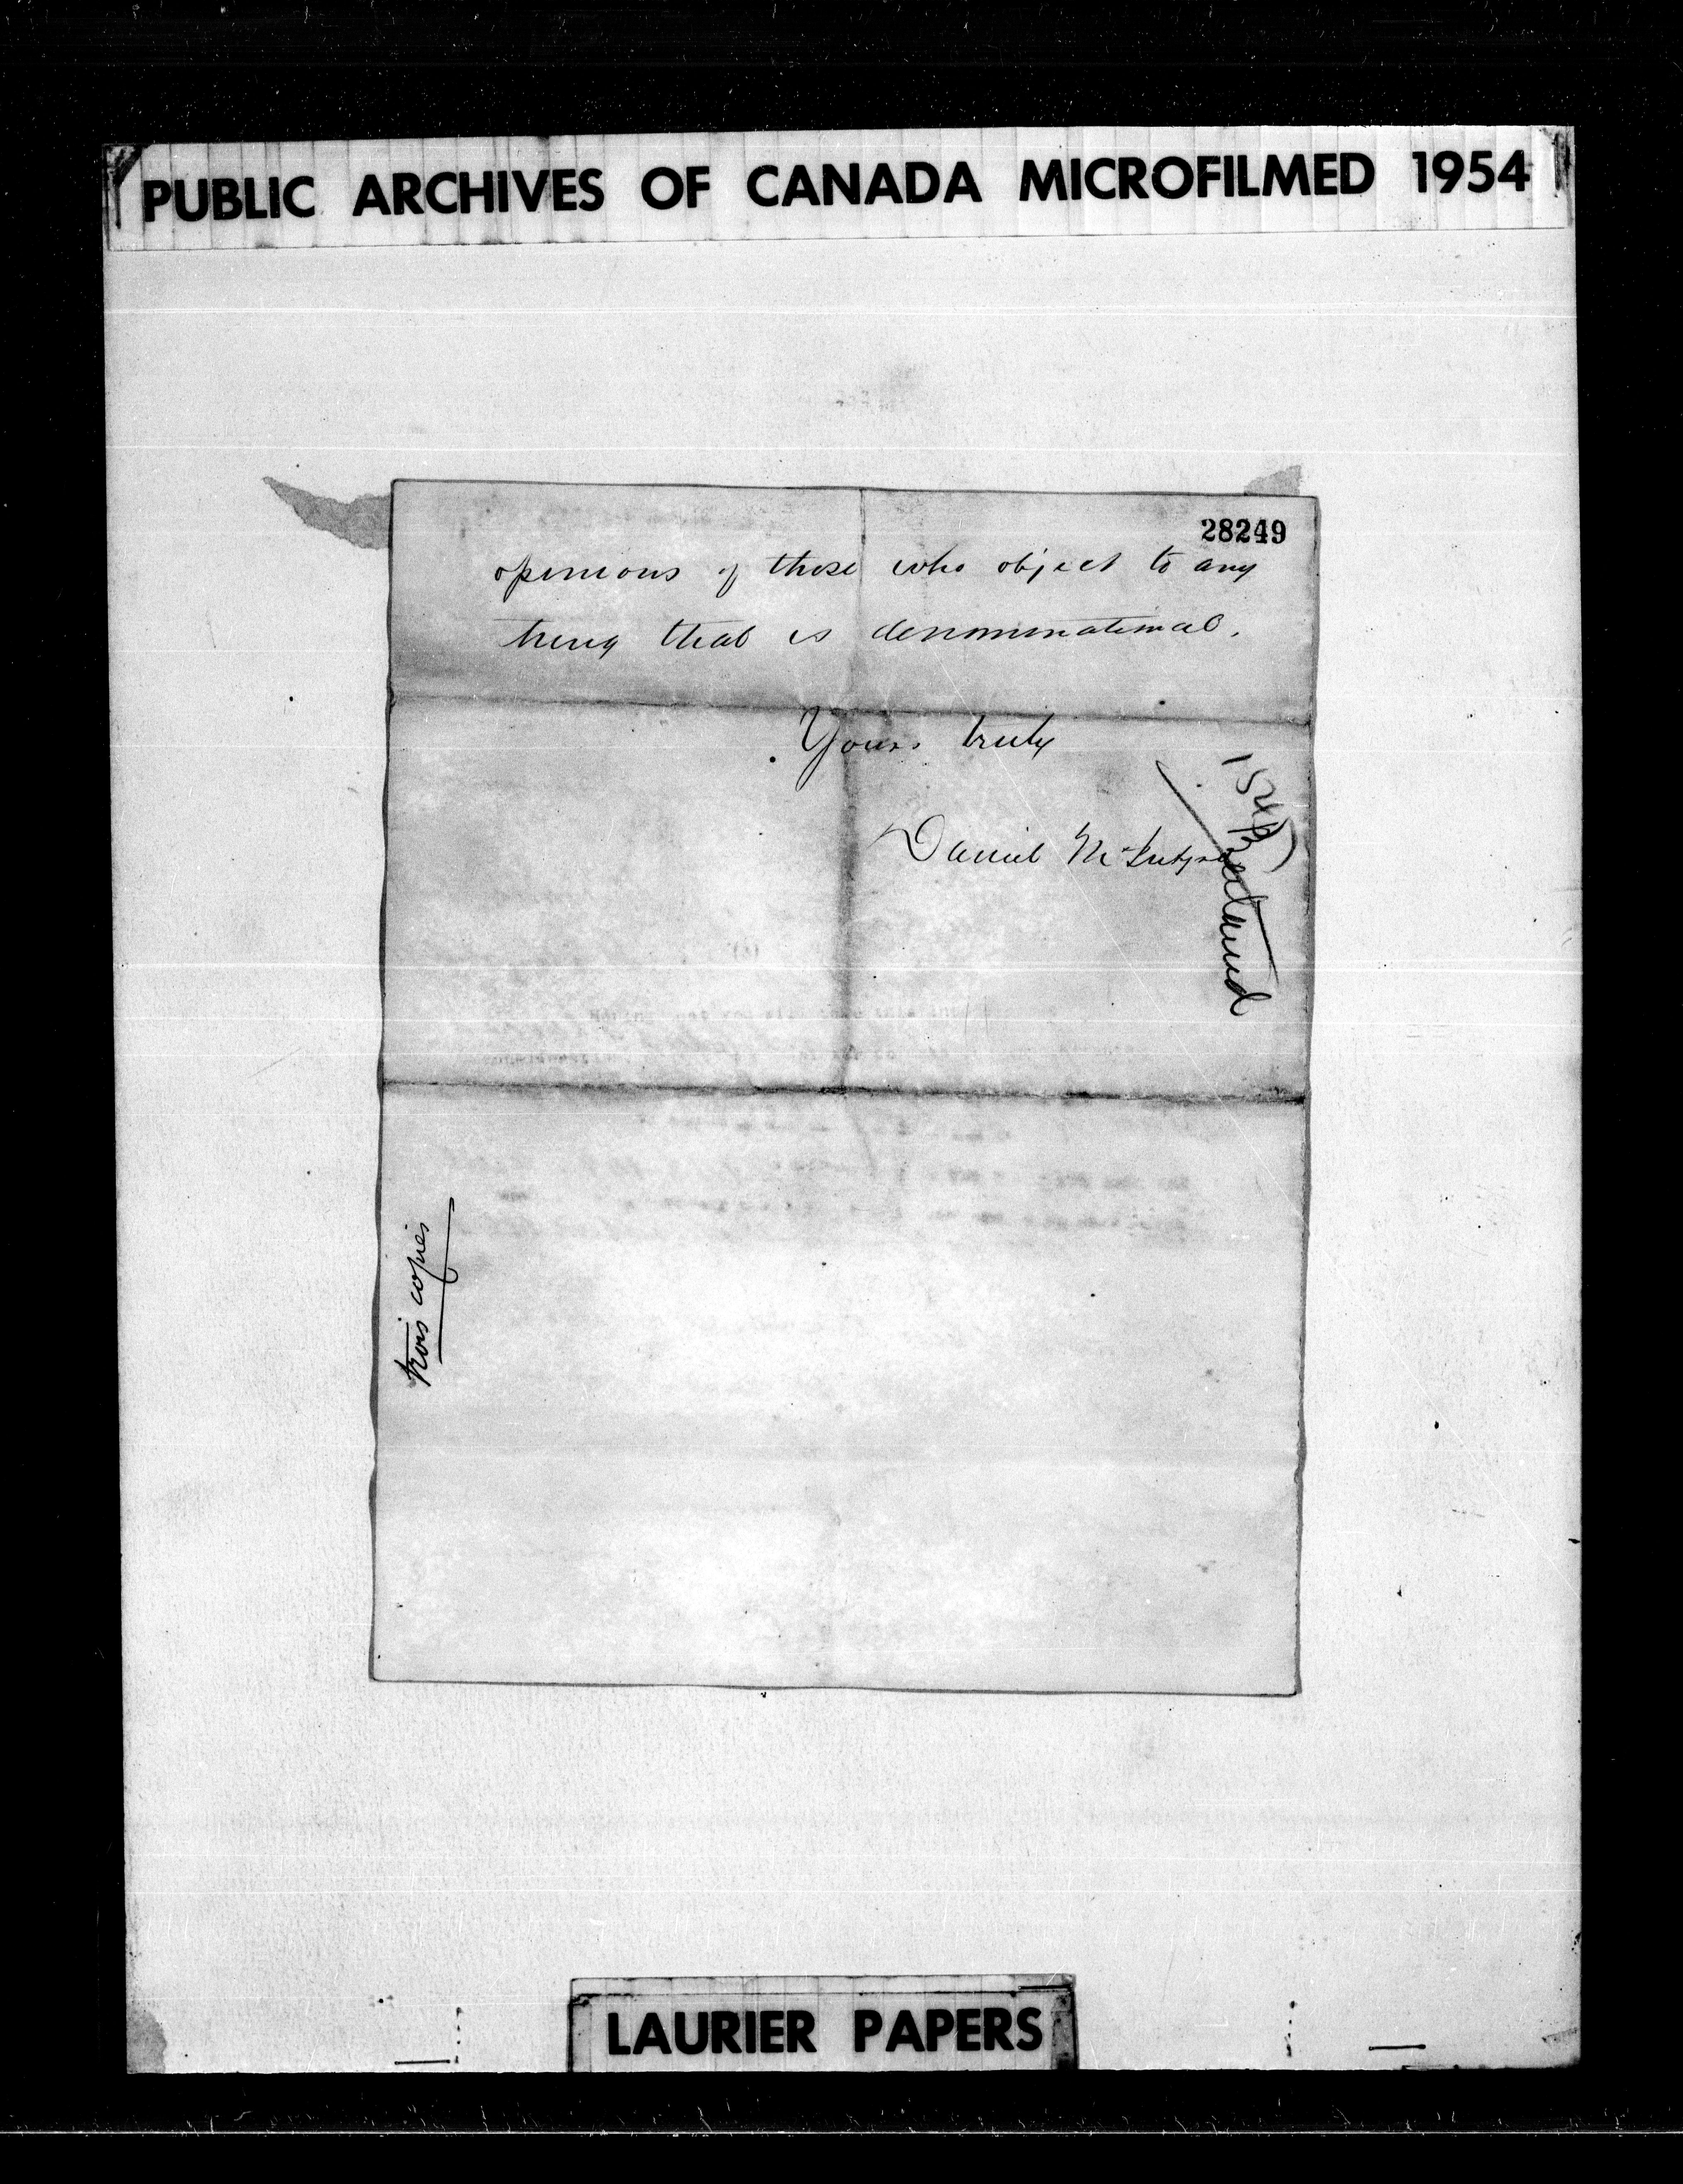 PUBLIC ARCHIVES OF CANADA MICROFILMED 1954
28249
opinions of those who object to any
thing that is denominational.
Yours truly
Daniel McIntyre
trois copies
LAURIER PAPERS